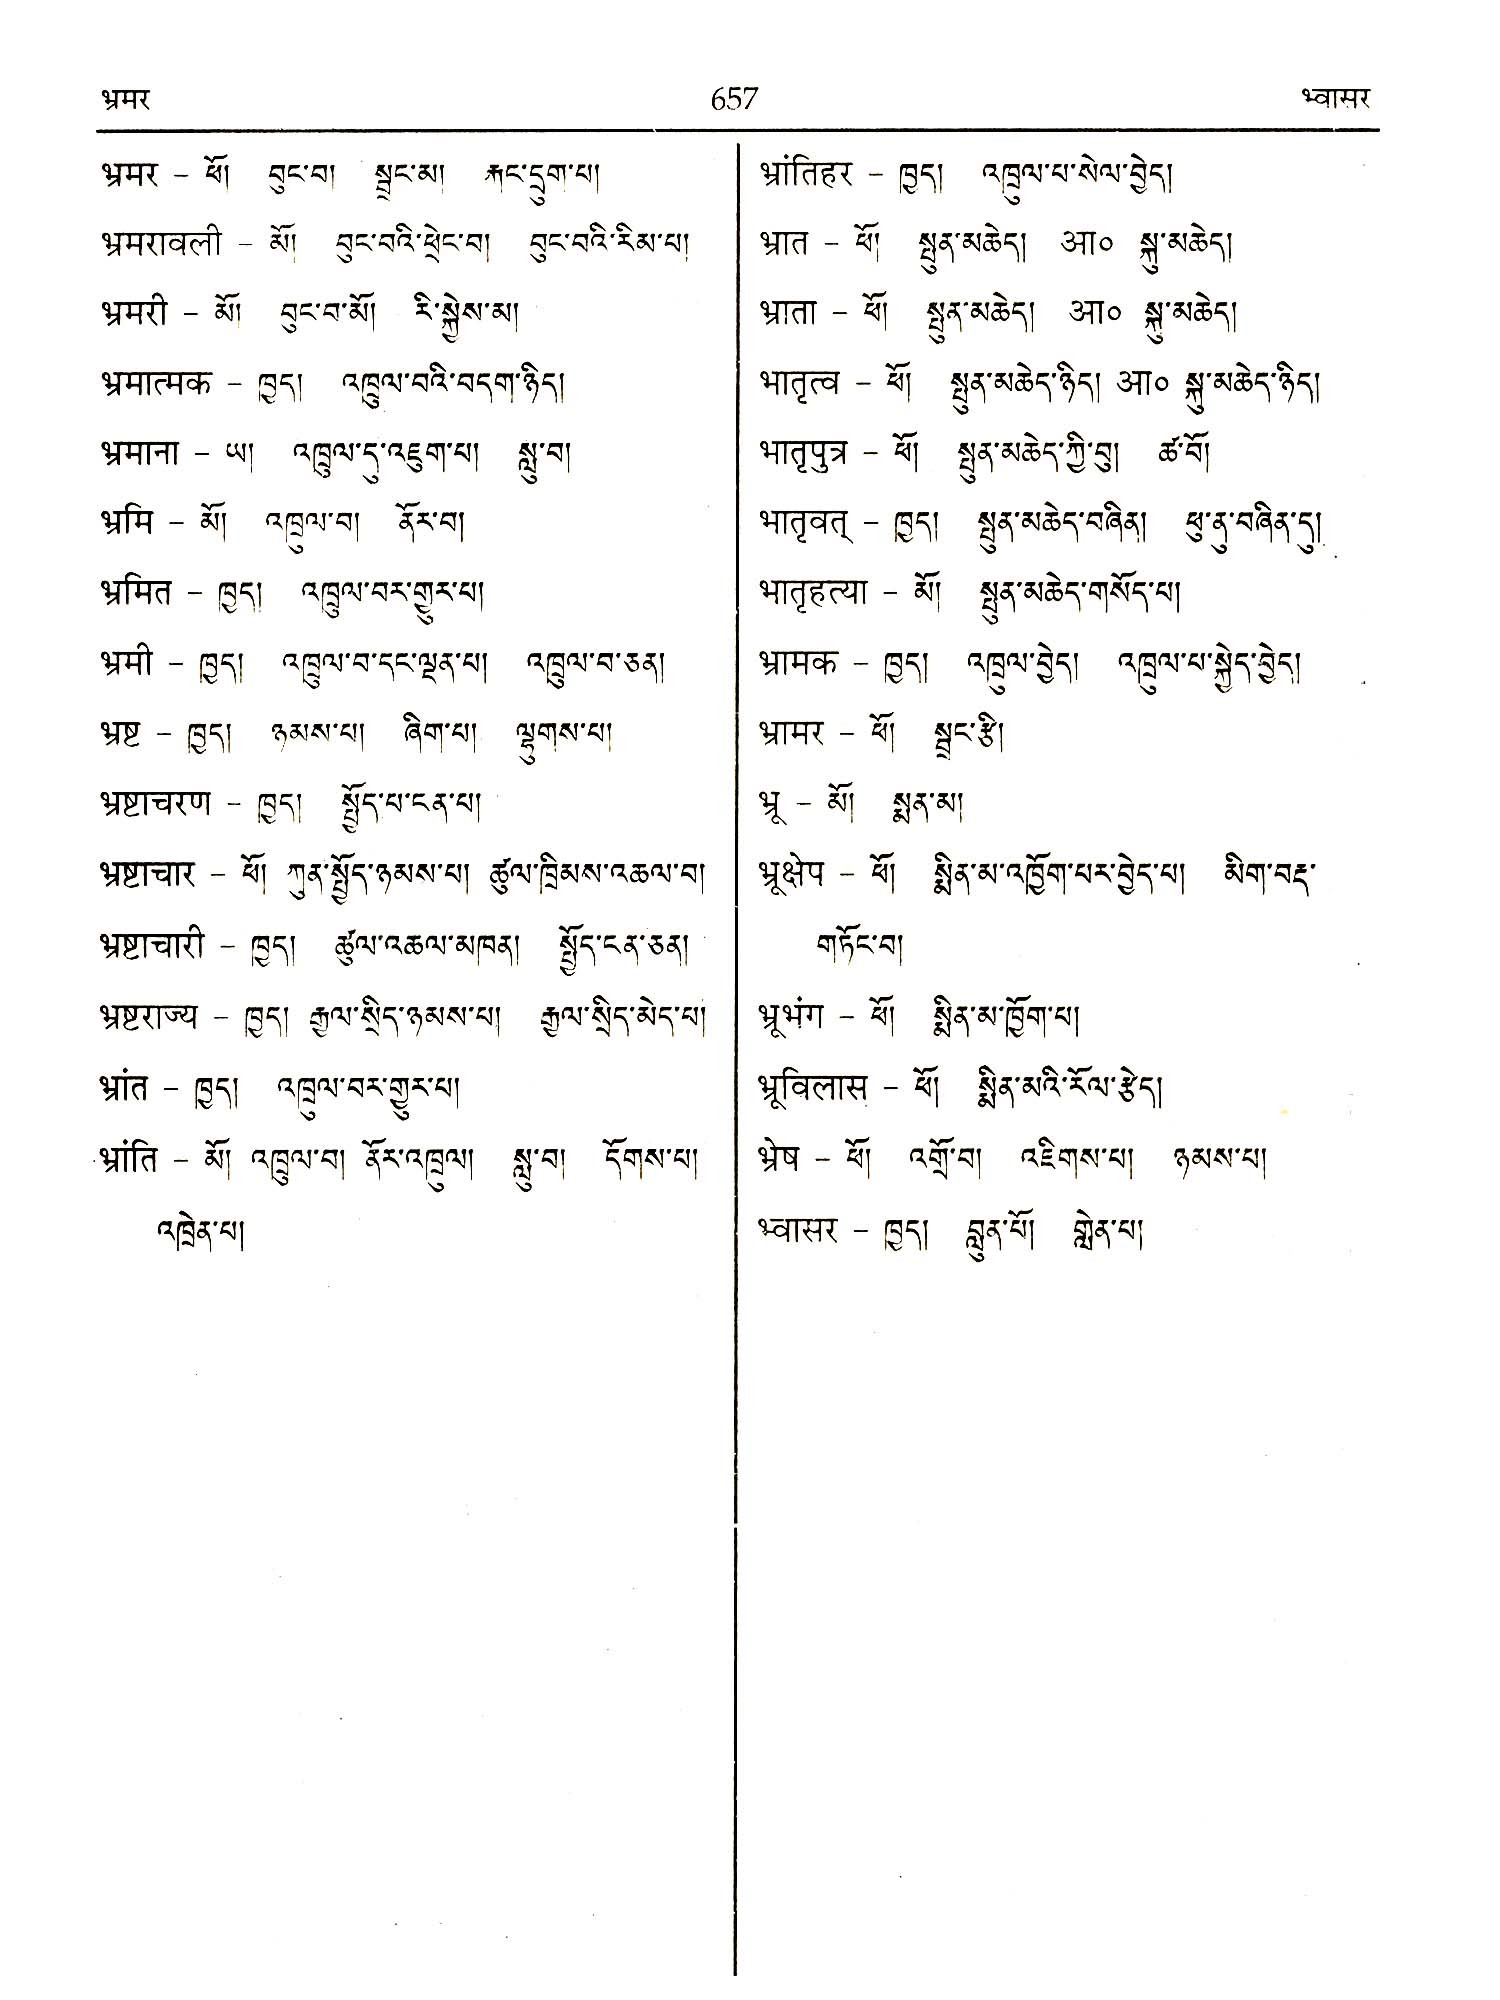 भ्रमर 657 भ्वासर
भ्रमर – ཕོ། བུང་བ། སྦྲང་མ། རྐང་དྲུག་པ།
भ्रमरावली – མོ། བུང་བའི་ཕྲེང་བ། བུང་བའི་རིམ་པ།
भ्रमरी – མོ། བུང་བ་མོ། རི་སྐྱེས་མ།
भ्रमात्मक – ཁྱད། འཁྲུལ་བའི་བདག་ཉིད།
भ्रमाना – ཡ། འཁྲུལ་དུ་འཇུག་པ། སླུ་བ།
भ्रमि – མོ། འཁྲུལ་བ། ནོར་བ།
भ्रमित – ཁྱད། འཁྲུལ་བར་གྱུར་པ།
भ्रमी – ཁྱད། འཁྲུལ་བ་དང་ལྡན་པ། འཁྲུལ་བ་ཅན།
भ्रष्ट – ཁྱད། ཉམས་པ། ཞིག་པ། ལྷུགས་པ།
भ्रष्टाचरण – ཁྱད། སྤྱོད་པ་ངན་པ།
भ्रष्टाचार – ཕོ། ཀུན་སྤྱོད་ཉམས་པ། ཚུལ་ཁྲིམས་འཆལ་བ།
भ्रष्टाचारी – ཁྱད། ཚུལ་འཆལ་མཁན། སྤྱོད་ངན་ཅན།
भ्रष्टराज्य – ཁྱད། རྒྱལ་སྲིད་ཉམས་པ། རྒྱལ་སྲིད་མེད་པ།
भ्रांत – ཁྱད། འཁྲུལ་བར་གྱུར་པ།
भ्रांति – མོ། འཁྲུལ་བ། ནོར་འཁྲུལ། སླུ་བ། དོགས་པ།
འཁྲེན་པ།
भ्रांतिहर – ཁྱད། འཁྲུལ་པ་སེལ་བྱེད།
भ्रात – ཕོ། སྤུན་མཆེད། आ० སྐུ་མཆེད།
भ्राता – ཕོ། སྤུན་མཆེད། आ० སྐུ་མཆེད།
भातृत्व – ཕོ། སྤུན་མཆེད་ཉིད། आ० སྐུ་མཆེད་ཉིད།
भातृपुत्र – ཕོ། སྤུན་མཆེད་ཀྱི་བུ། ཚ་བོ།
भातृवत् – ཁྱད། སྤུན་མཆེད་བཞིན། ཕུ་ནུ་བཞིན་དུ།
भातृहत्या – མོ། སྤུན་མཆེད་གསོད་པ།
भ्रामक – ཁྱད། འཁྲུལ་བྱེད། འཁྲུལ་པ་སྐྱེད་བྱེད།
भ्रामर – ཕོ། སྦྲང་རྩི།
भ्रू – མོ། སྨན་མ།
भ्रूक्षेप – ཕོ། སྨིན་མ་འཁྱོག་པར་བྱེད་པ། མིག་བརྡ་
གཏོང་བ།
भ्रूभंग – ཕོ། སྨིན་མ་ཁྱོག་པ།
भ्रूविलास – ཕོ། སྨིན་མའི་རོལ་རྩེད།
भ्रेष – ཕོ། འགྲོ་བ། འཇིགས་པ། ཉམས་པ།
भ्वासर – ཁྱད། བླུན་པོ། གླེན་པ།